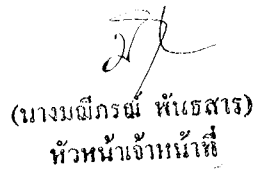 (นางมณีภรณ์ พันธสาร)
หัวหน้าเจ้าหน้าที่